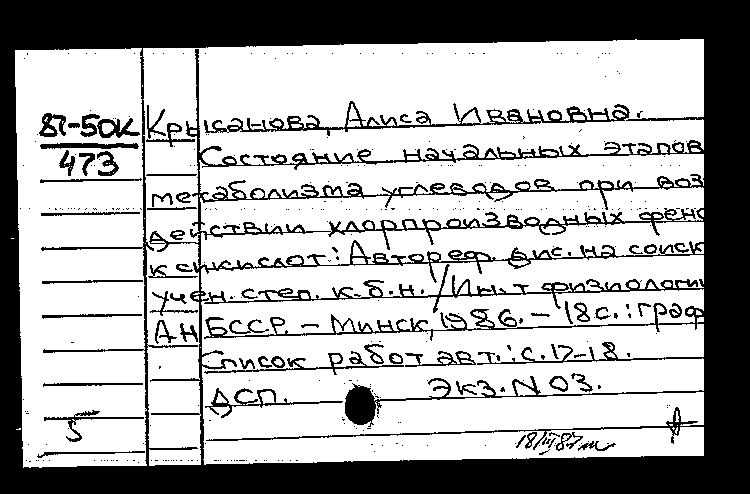 87-50К
473
Крысанова, Алиса Ивановна.
Состояние начальных этапов
метаболизма углеводов при воз
действии хлорпроизводных фено
ксикислот.: Автореф. дис. на соиск
учен. степ. к.б.н. / Ин-т физиологии
АН БССР. - Минск, 1986. - 18 с. : граф
Список работ авт.: с. 17-18.
ДСП. Экз. N 03.
5